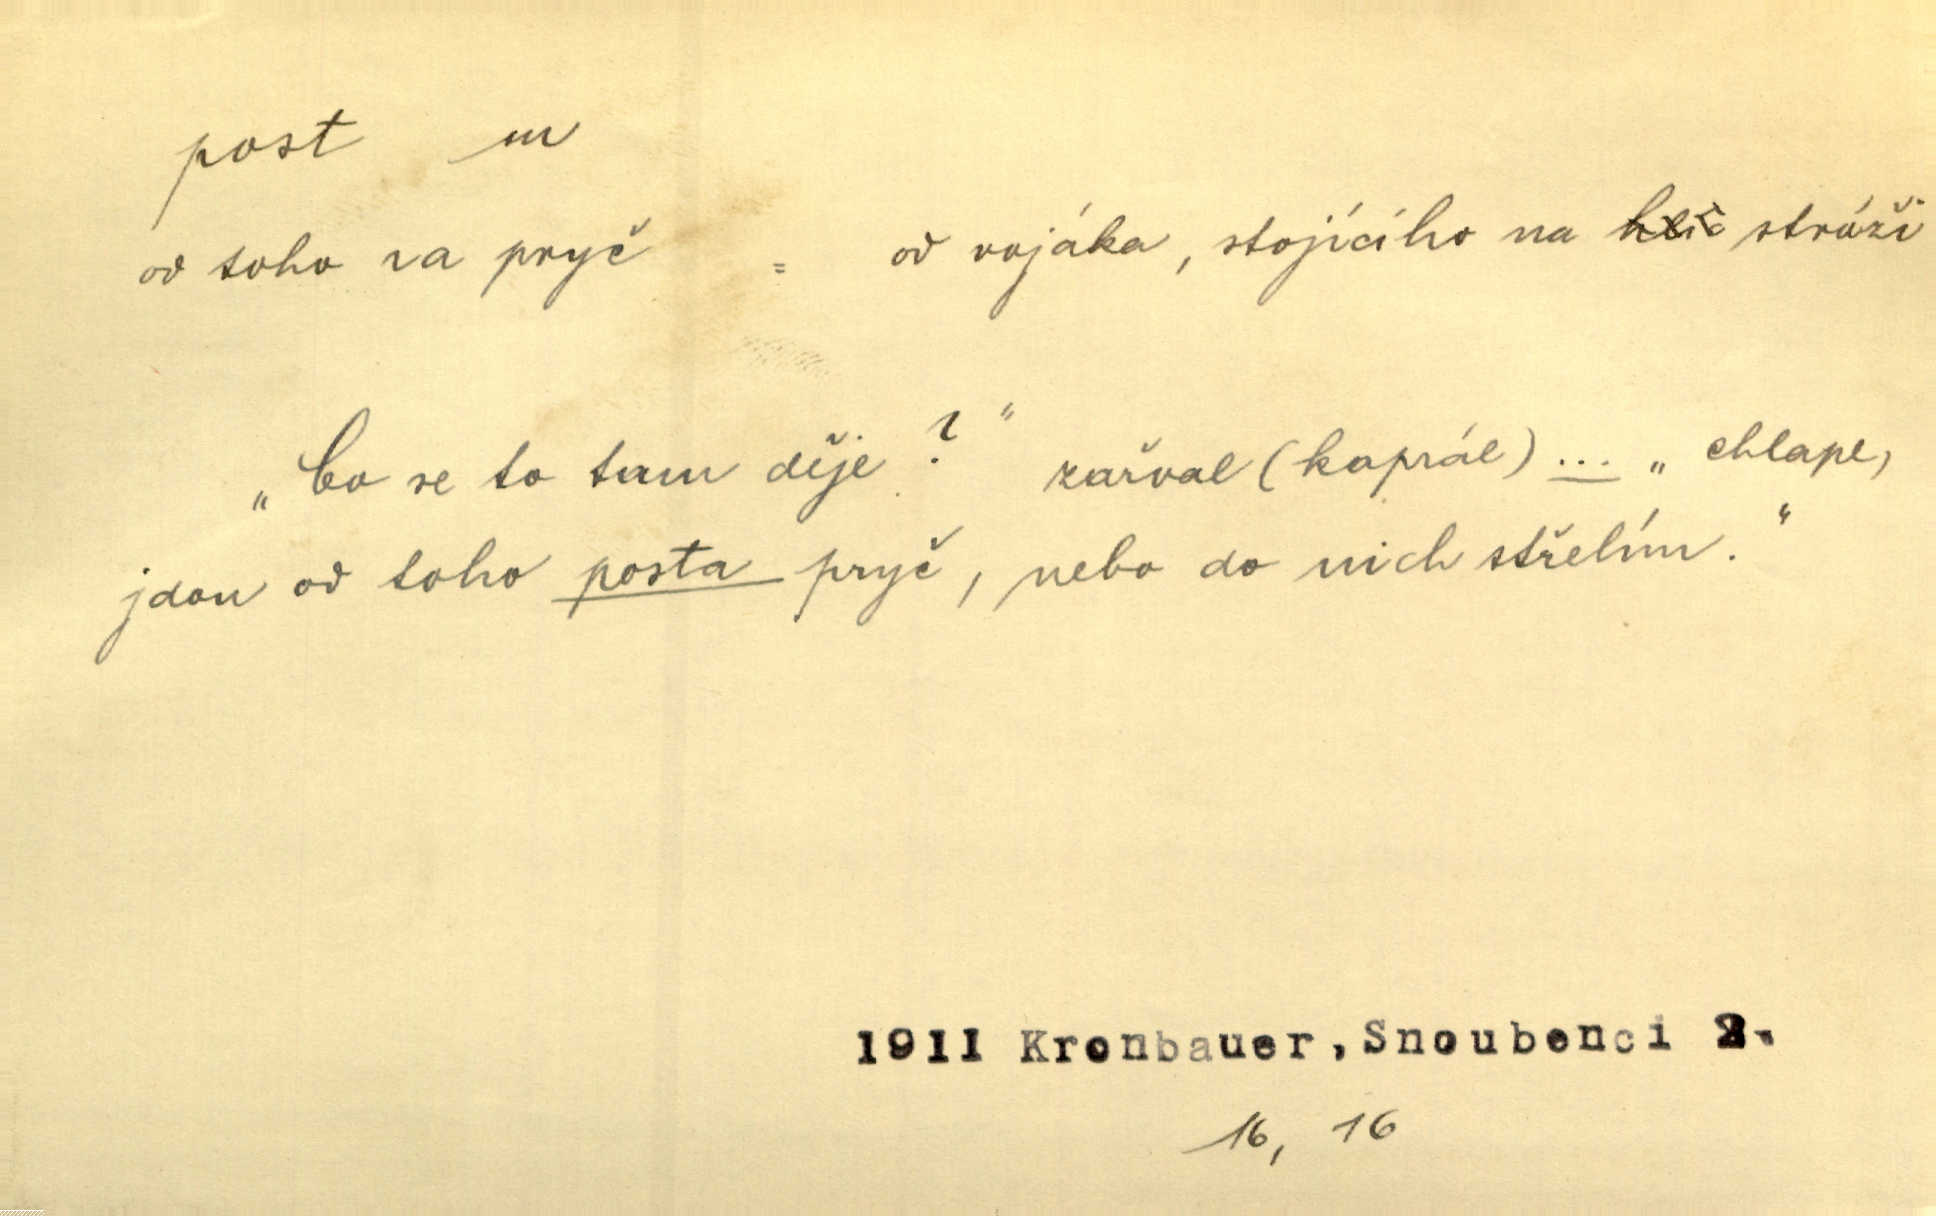 post m
od toho va pryč = od vojáka, stojícího na stráži
„Co se to tam děje?" zařval (kaprál) ... „chlape,
jdou od toho posta pryč, nebo do nich střelím."
1911 Kronbauer, Snoubenci 2.
16, 16